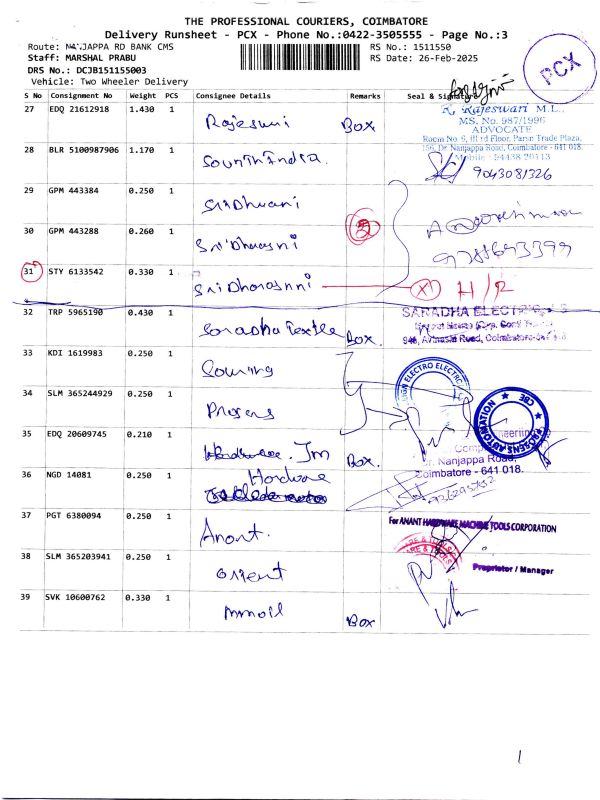 THE PROFESSIONAL COURIERS, COIMBATORE
Delivery Runsheet - PCX - Phone No.:0422-3505555 - Page No.:3
Route: NANJAPPA RD BANK CMS
RS No.: 1511550
Staff: MARSHAL PRABU
RS Date: 26-Feb-2025
DRS No.: DCJB151155003
Vehicle: Two Wheeler Delivery
PCX
S No Consignment No Weight PCS Consignee Details Remarks Seal & Signature
27 EDQ 21612918 1.430 1 Rajeswni Box
R. Rajeswari M.L.,
MS. No. 987/1996
ADVOCATE
Room No. 6, III rd Floor, Parsn Trade Plaza,
156, Dr. Nanjappa Road, Coimbatore - 641 018.
Mobile : 94438 20113
28 BLR 5100987906 1.170 1 South India. 9043081326
29 GPM 443384 0.250 1 Sri Dhwani
30 GPM 443288 0.260 1 Sri Dharsni
9788693399
31 STY 6133542 0.330 1 Sri Dharashni X H/R
32 TRP 5965190 0.430 1 Saradha Textile Box.
SARADHA ELECTRICALS
Avinashi Road, Coimbatore
33 KDI 1619983 0.250 1
ELECTRO ELECTR
34 SLM 365244929 0.250 1 Prosens
PROSENS AUTOMATION CBE
35 EDQ 20609745 0.210 1 Hardware. Jm Box.
Dr. Nanjappa Road,
Coimbatore - 641 018.
36 NGD 14081 0.250 1 Hardware
37 PGT 6380094 0.250 1 Anant.
For ANANT HARDWARE MACHINE TOOLS CORPORATION
38 SLM 365203941 0.250 1 Orient
Proprietor / Manager
39 SVK 10600762 0.330 1 Box
1